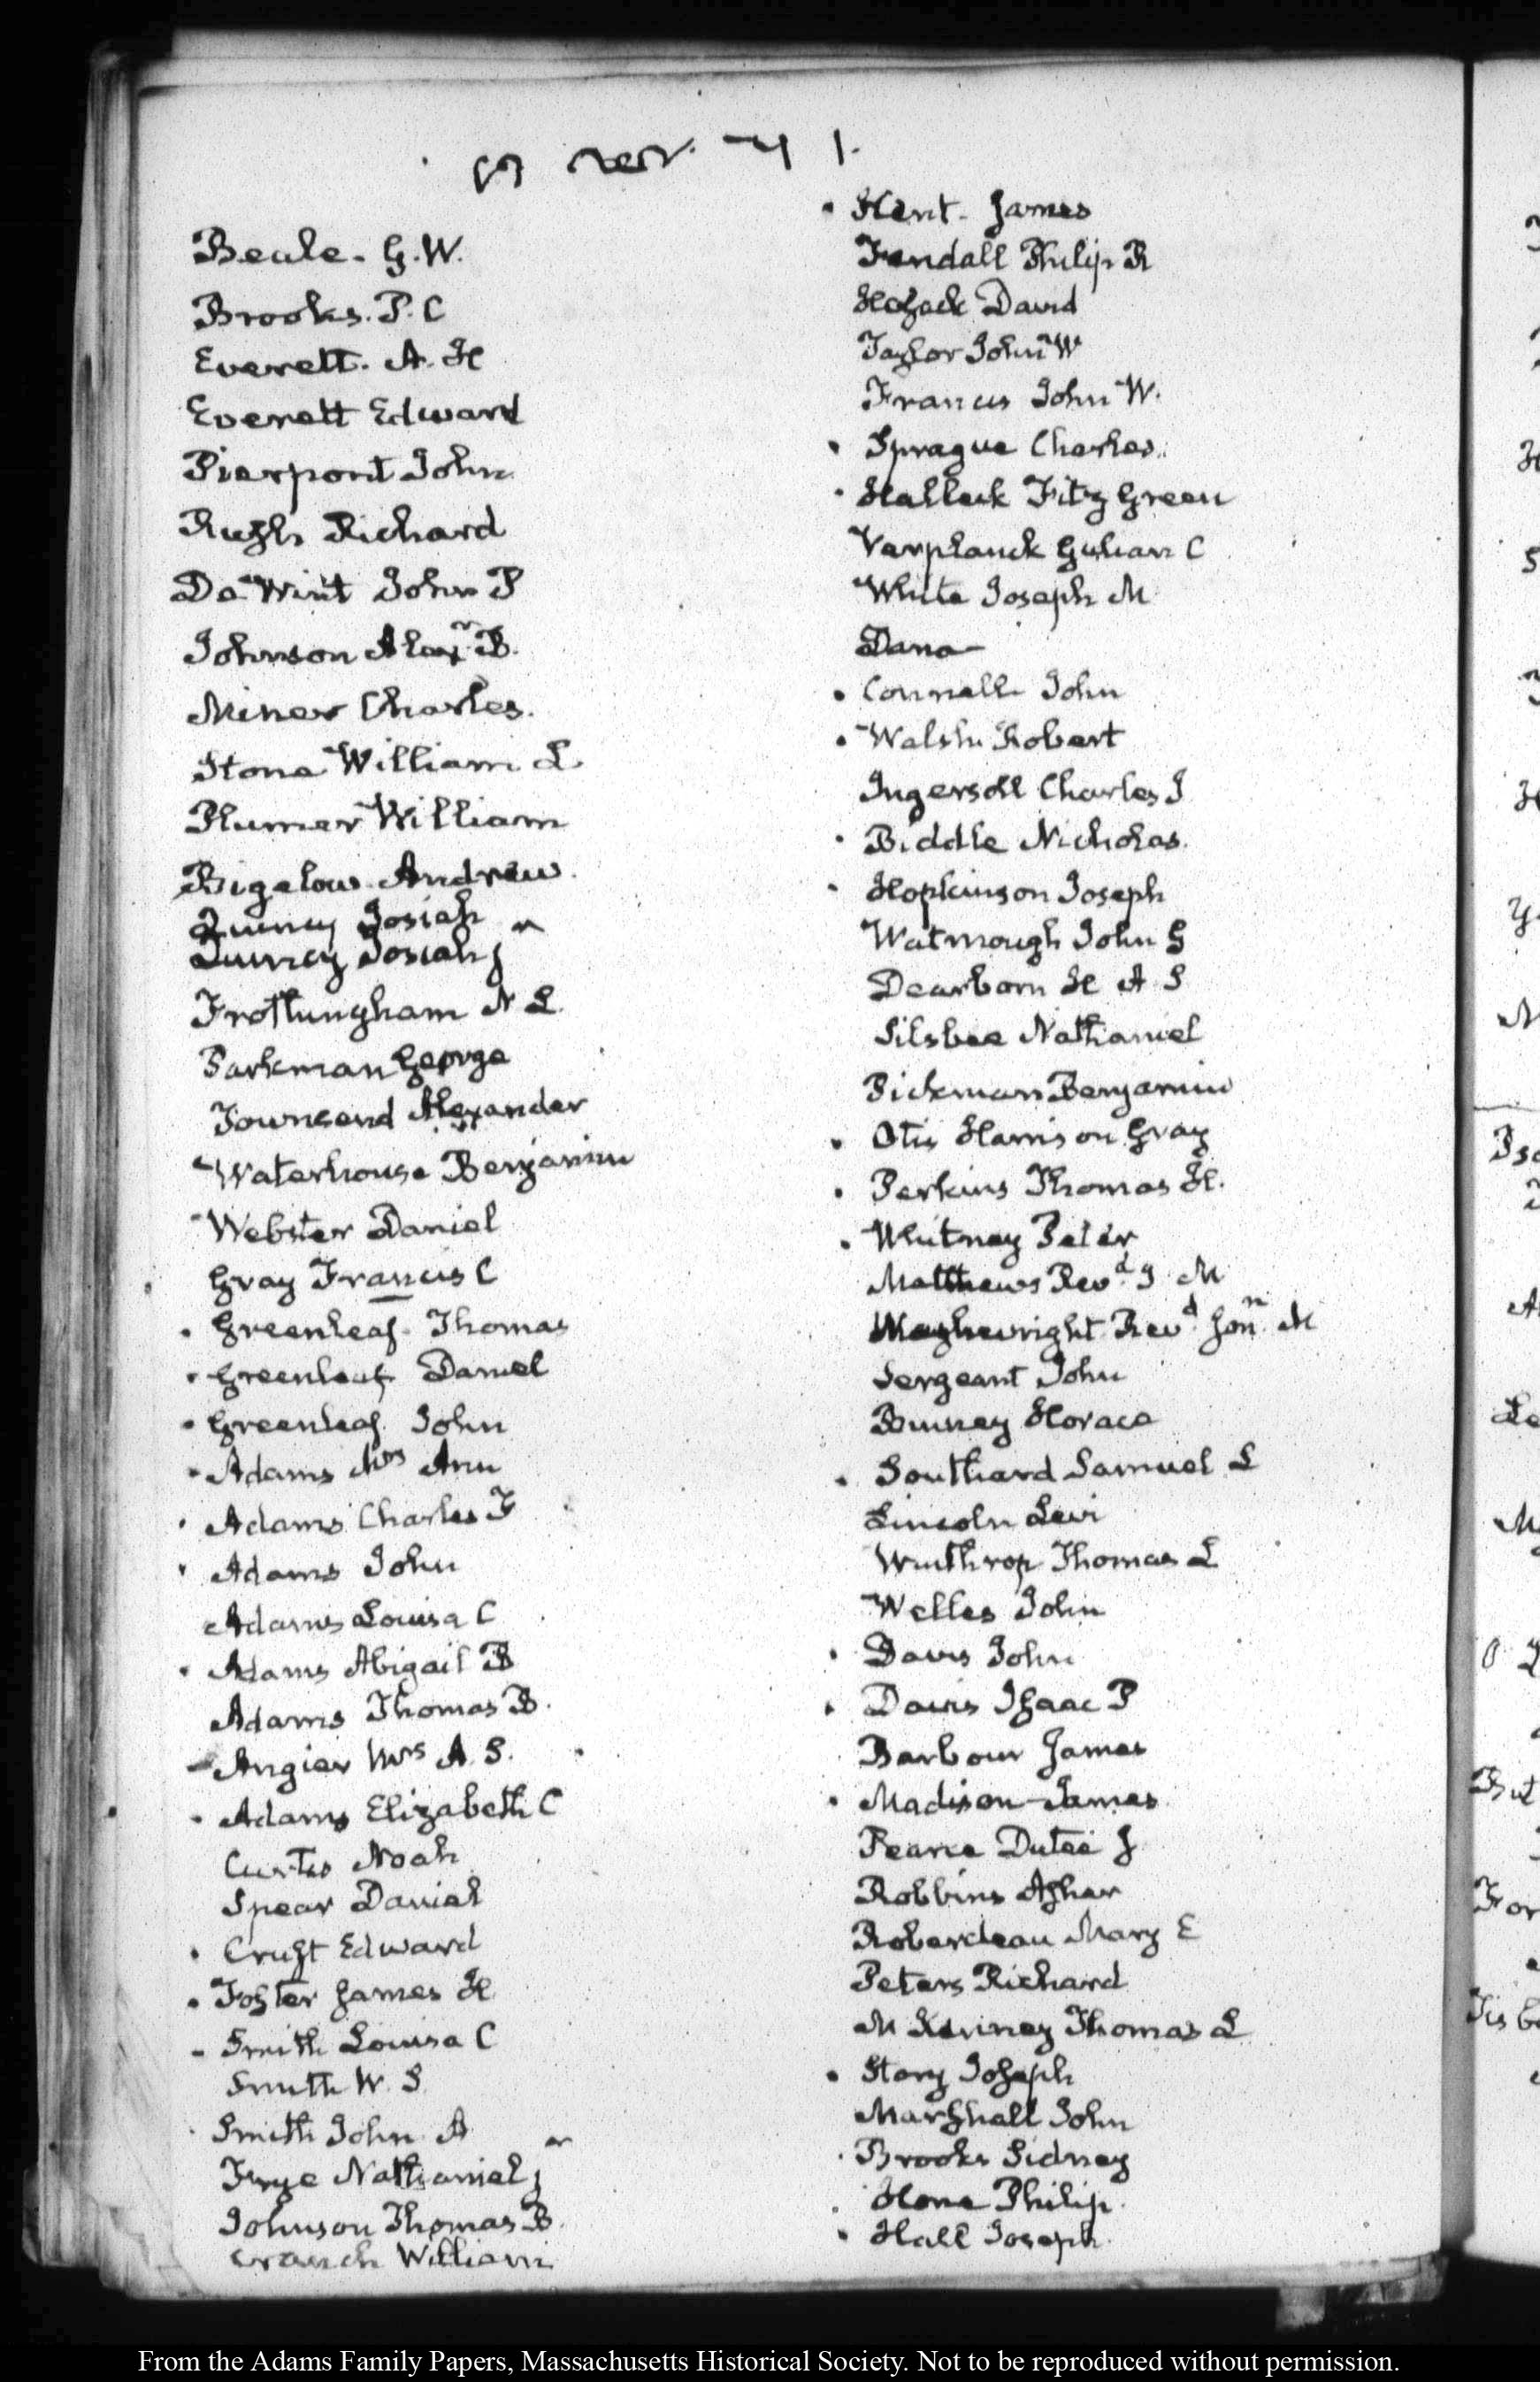 Beale. G. W.
Brooks. P. C
Everett. A. H
Everett Edward
Pierpont John
Rush Richard
De Wint John P
Johnson Alexr. B.
Miner Charles.
Stone William L
Plumer William
Bigelow Andrew.
Quincy Josiah
Quincy Josiah jr
Frothingham N L.
Parkman George
Townsend Alexander
Waterhouse Benjamin
Webster Daniel
Gray Francis C
Greenleaf Thomas
Greenleaf Daniel
Greenleaf John
Adams Mrs Ann
Adams Charles F
Adams John
Adams Louisa C
Adams Abigail B
Adams Thomas B.
Angier Mrs A. S.
Adams Elizabeth C
Curtis Noah
Spear Daniel
Cruft Edward
Foster James H
Smith Louisa C
Smith W. S
Smith John A
Frye Nathaniel jr
Johnson Thomas B.
Cranch William
Kent. James
Fendall Philip R
Hosack David
Taylor John W
Francis John W.
Sprague Charles.
Halleck Fitz Green
Verplanck Gulian C
White Joseph M
Dana
Connell John
Walsh Robert
Ingersoll Charles J
Biddle Nicholas.
Hopkinson Joseph
Watmough John G
Dearborn H A S
Silsbee Nathaniel
Pickman Benjamin
Otis Harrison Gray
Perkins Thomas H.
Whitney Peter
Matthews Revd. J M
Revd. Jonn. M
Sergeant John
Binney Horace
Southard Samuel L
Lincoln Levi
Winthrop Thomas L
Welles John
Davis John
Davis Isaac P
Barbour James
Madison James
Pearce Dutee J
Robbins Asher
Roberdeau Mary E
Peters Richard
M Kenney Thomas L
Story Joseph
Marshall John
Brooks Sidney
Hone Philip.
Hall Joseph.
From the Adams Family Papers, Massachusetts Historical Society. Not to be reproduced without permission.